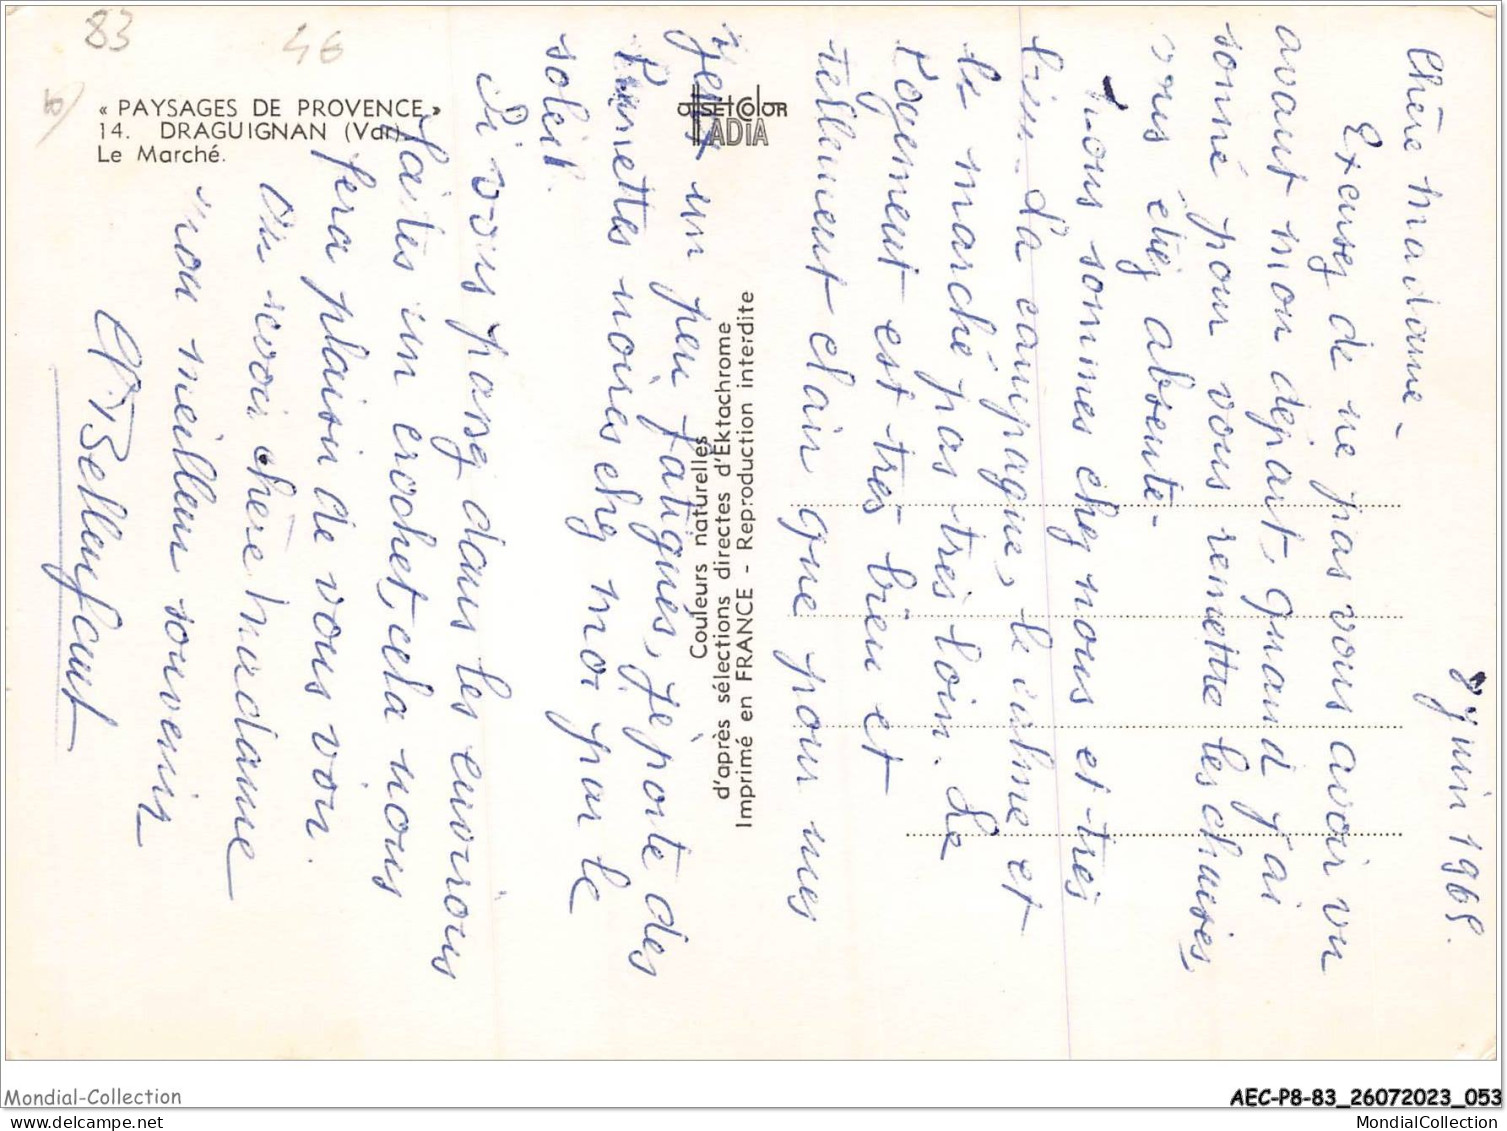 83
46
« PAYSAGES DE PROVENCE »
14. DRAGUIGNAN (Var)
Le Marché.
offset color
IADIA
Couleurs naturelles
d'après sélections directes d'Ektachrome
Imprimé en FRANCE - Reproduction interdite
8 juin 1965.
Chère madame -
Excusez de ne pas vous avoir vu
avant mon départ, quand j'ai
sonné pour vous remettre les chaises,
vous étiez absente -
Nous sommes chez nous et très
bien - La campagne, le calme et
le marché pas très loin. Le
logement est très bien et
tellement clair que pour mes
yeux un peu fatigués, je porte des
lunettes noires chez moi par le
soleil.
Si vous passez dans les environs
faites un crochet, cela nous
fera plaisir de vous voir.
Au revoir chère madame
mon meilleur souvenir
Bellenfant
Mondial-Collection
AEC-P8-83_26072023_053
www.delcampe.net
MondialCollection